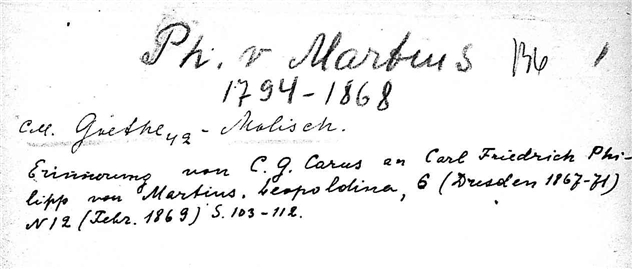 Ph. v Martius 136 1
1794-1868
см. Goethe 42 - Molisch.
Erinnerung von C. G. Carus an Carl Friedrich Phi-
lipp von Martius. Leopoldina, 6 (Dresden 1867-71)
N 12 (Febr. 1869) S. 103-112.